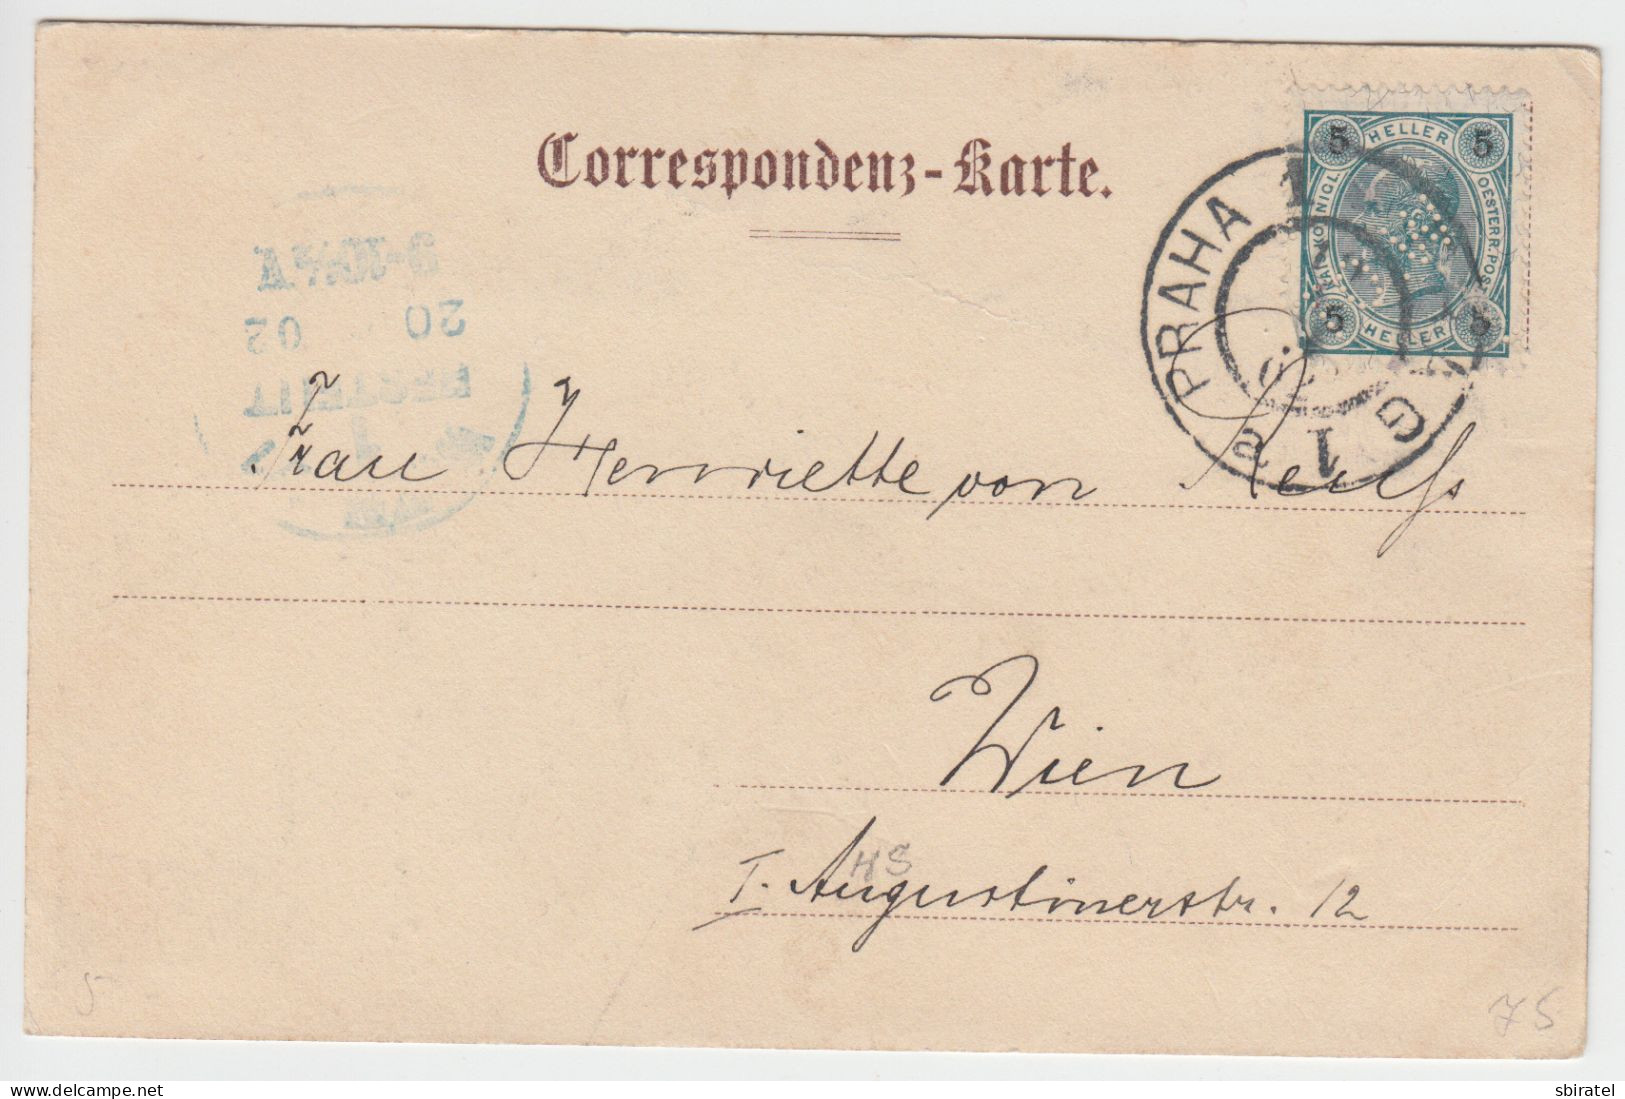 Correspondenz-Karte.
5 HELLER 5
KAIS. KÖNIGL. OESTERR. POST
5 HELLER 5
PRAHA 1
1
BESTELLT
20 02
Frau Henriette von Reuß
Wien
I. Augustinerstr. 12
HS
5
75
sbiratel